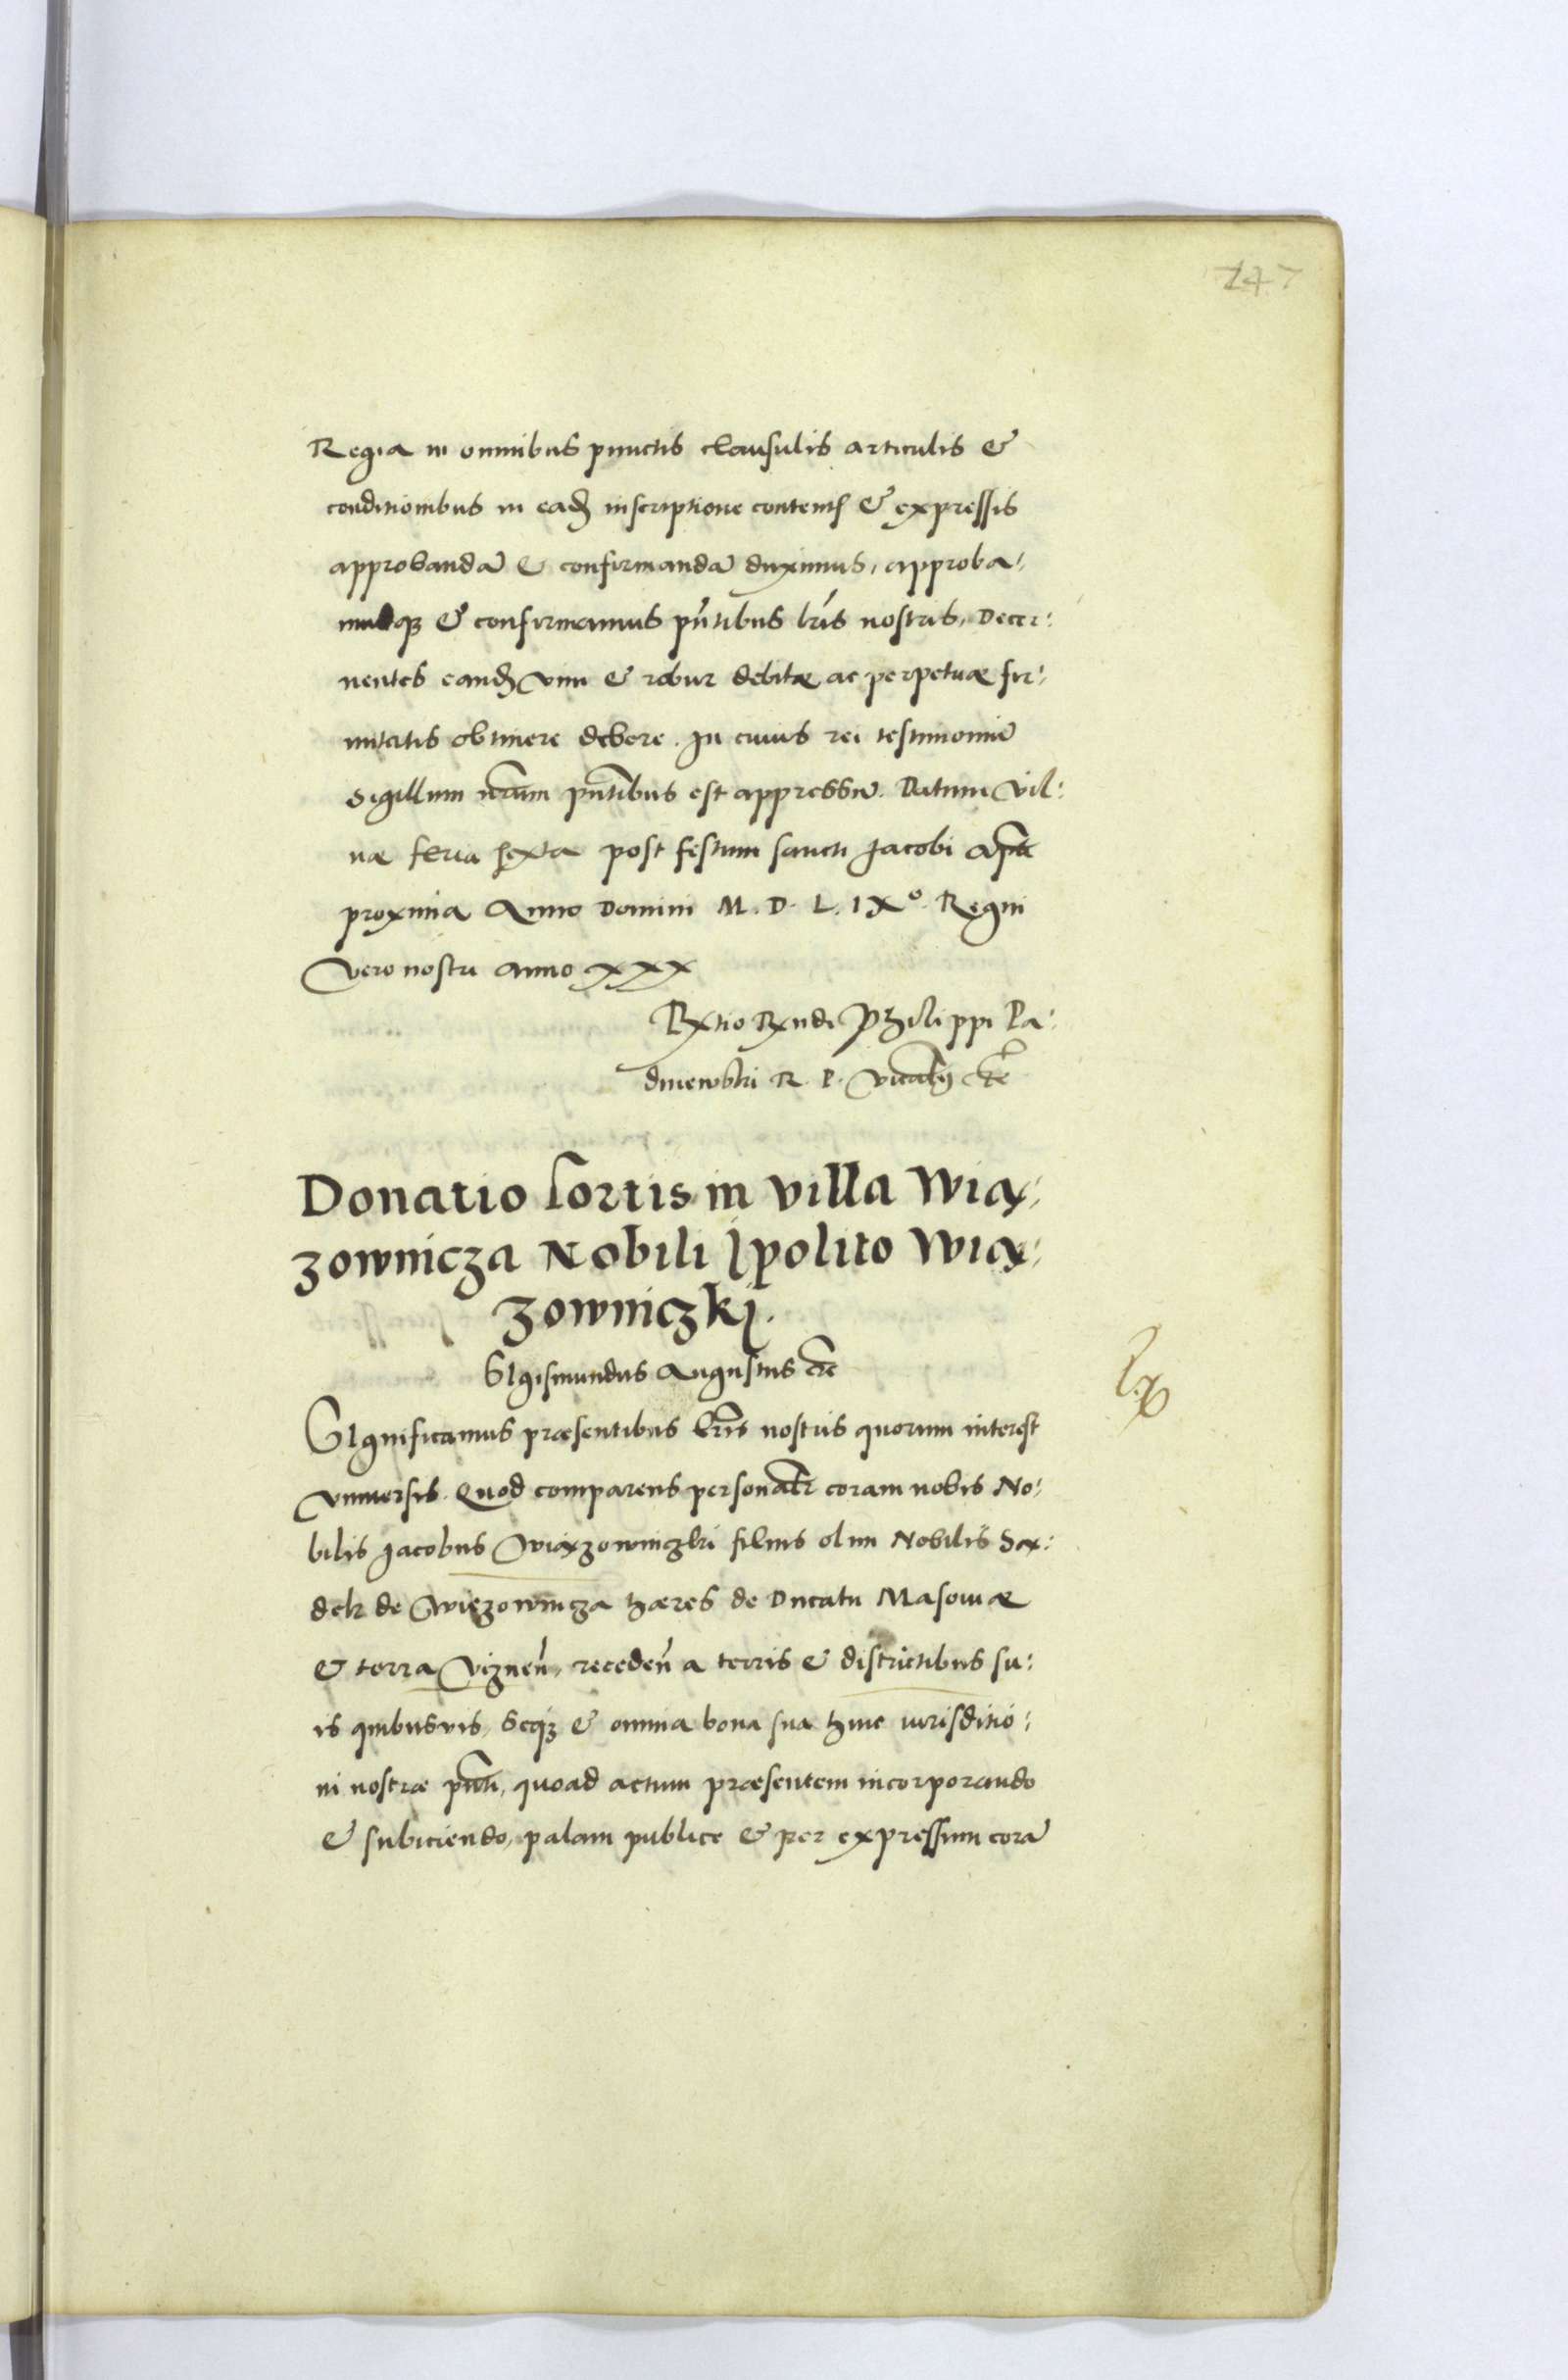 147
Regia in omnibus punctis clausulis articulis &
conditionibus in eadꝫ inscriptione contentꝭ & expressis
approbandā & confirmandā duximus, approba:
musqꝫ & confirmamus pñtibus lrīs nostris, Decer:
nentes eandꝫ vim & robur debitæ ac perpetuæ fir:
mitatis obtinere debere. In cuius rei testimoniū
Sigillum nrūm pñtibus est appressū. Datum Vil:
næ feria sexta post festum sancti Jacobi Apłi
proxima Anno Domini M. D. L. IXº. Regni
Vero nostri anno XXX
Rxtio Rxndi Philippi Pa:
dniewski R. P. Vicancłꝫ etc̄
Donatio sortis in villa Wiąx:
zownicza Nobili Ipolito Wiąx:
zowniczkj.
SIgismundus Augustus etc̄
SIgnificamus præsentibus lrīs nostris quorum interest
Vniuersis. Quod comparens personalr̄ coram nobis No:
bilis Jacobus Wiązowniczki filius olim Nobilis Są:
dek de Więzownicza hæres de Ducatu Masouiæ
& terra Viznen̄, receden̄ a terris & districtibus su:
is quibusuis, Seqꝫ & omnia bona sua huic iurisditio:
ni nostræ pñti, quoad actum præsentem incorporando
& subiciendo, palam publice & per expressum corā